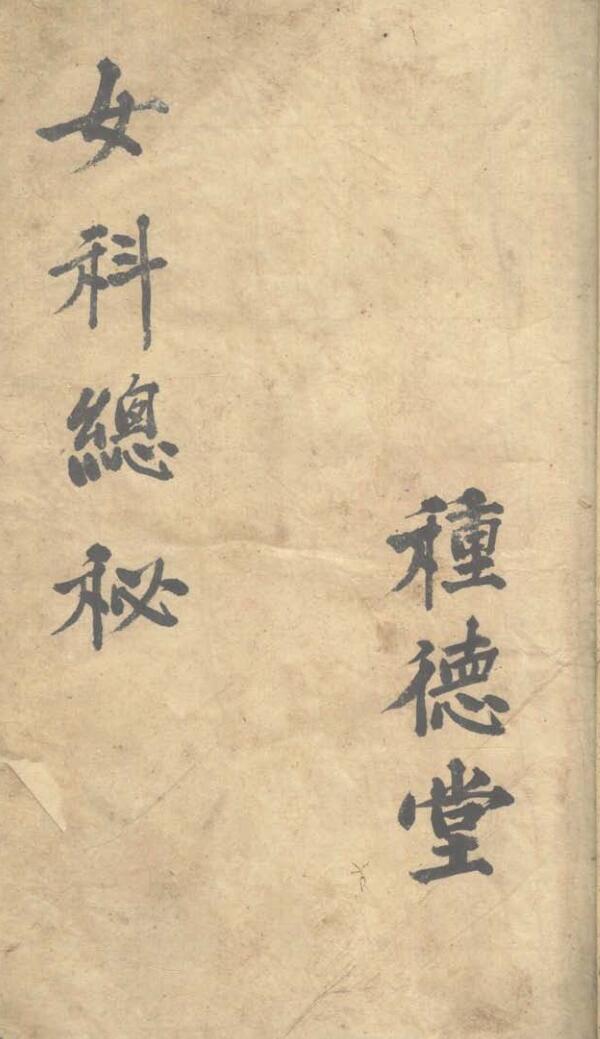 種德堂
女科總秘